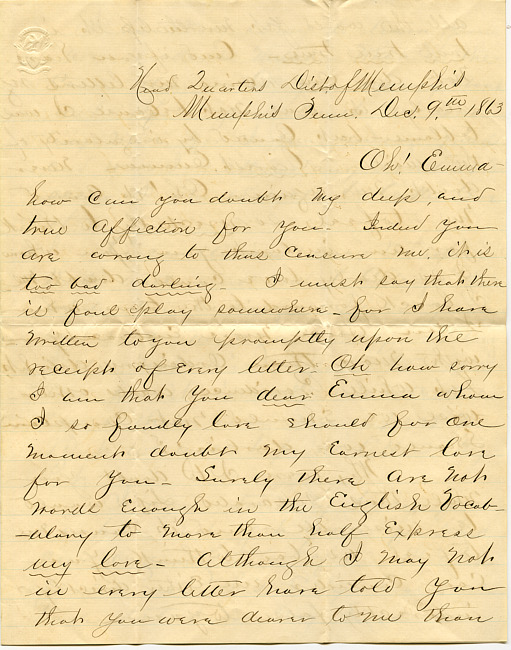 Head Quarters Dist of Memphis
Memphis Tenn. Dec. 9th 1863
Oh! Emma-
how can you doubt my deep, and
true affection for you- Indeed you
are wrong to thus censure me, it is
too bad darling- I must say that there
is foul play somewhere- for I have
written to you promptly upon the
receipt of every letter. Oh how sorry
I am that you dear Emma whom
I so fondly love should for one
moment doubt my Earnest love
for you- Surely there are not
words enough in the English Vocab-
-ulary to more than half Express
my love- Although I may not
in every letter have told you
that you were dearer to me than